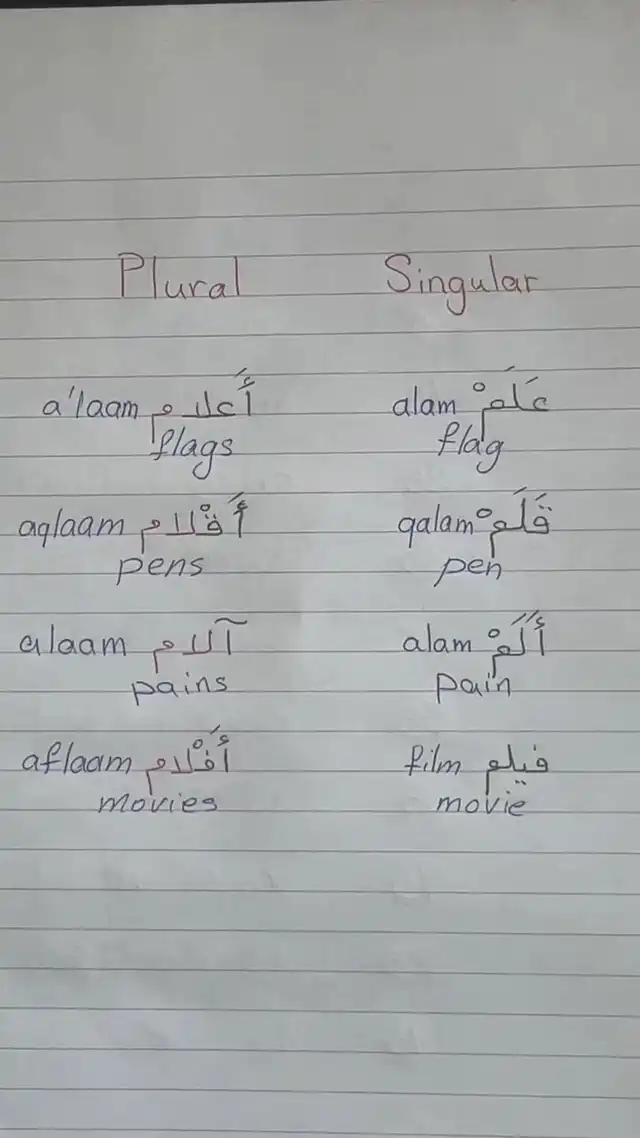 Plural Singular
a'laam أَعلام alam عَلَمْ
flags flag
aqlaam أَقْلام qalam قَلَمْ
pens pen
alaam آلام alam أَلَمْ
pains pain
aflaam أَفْلام film فيلم
movies movie